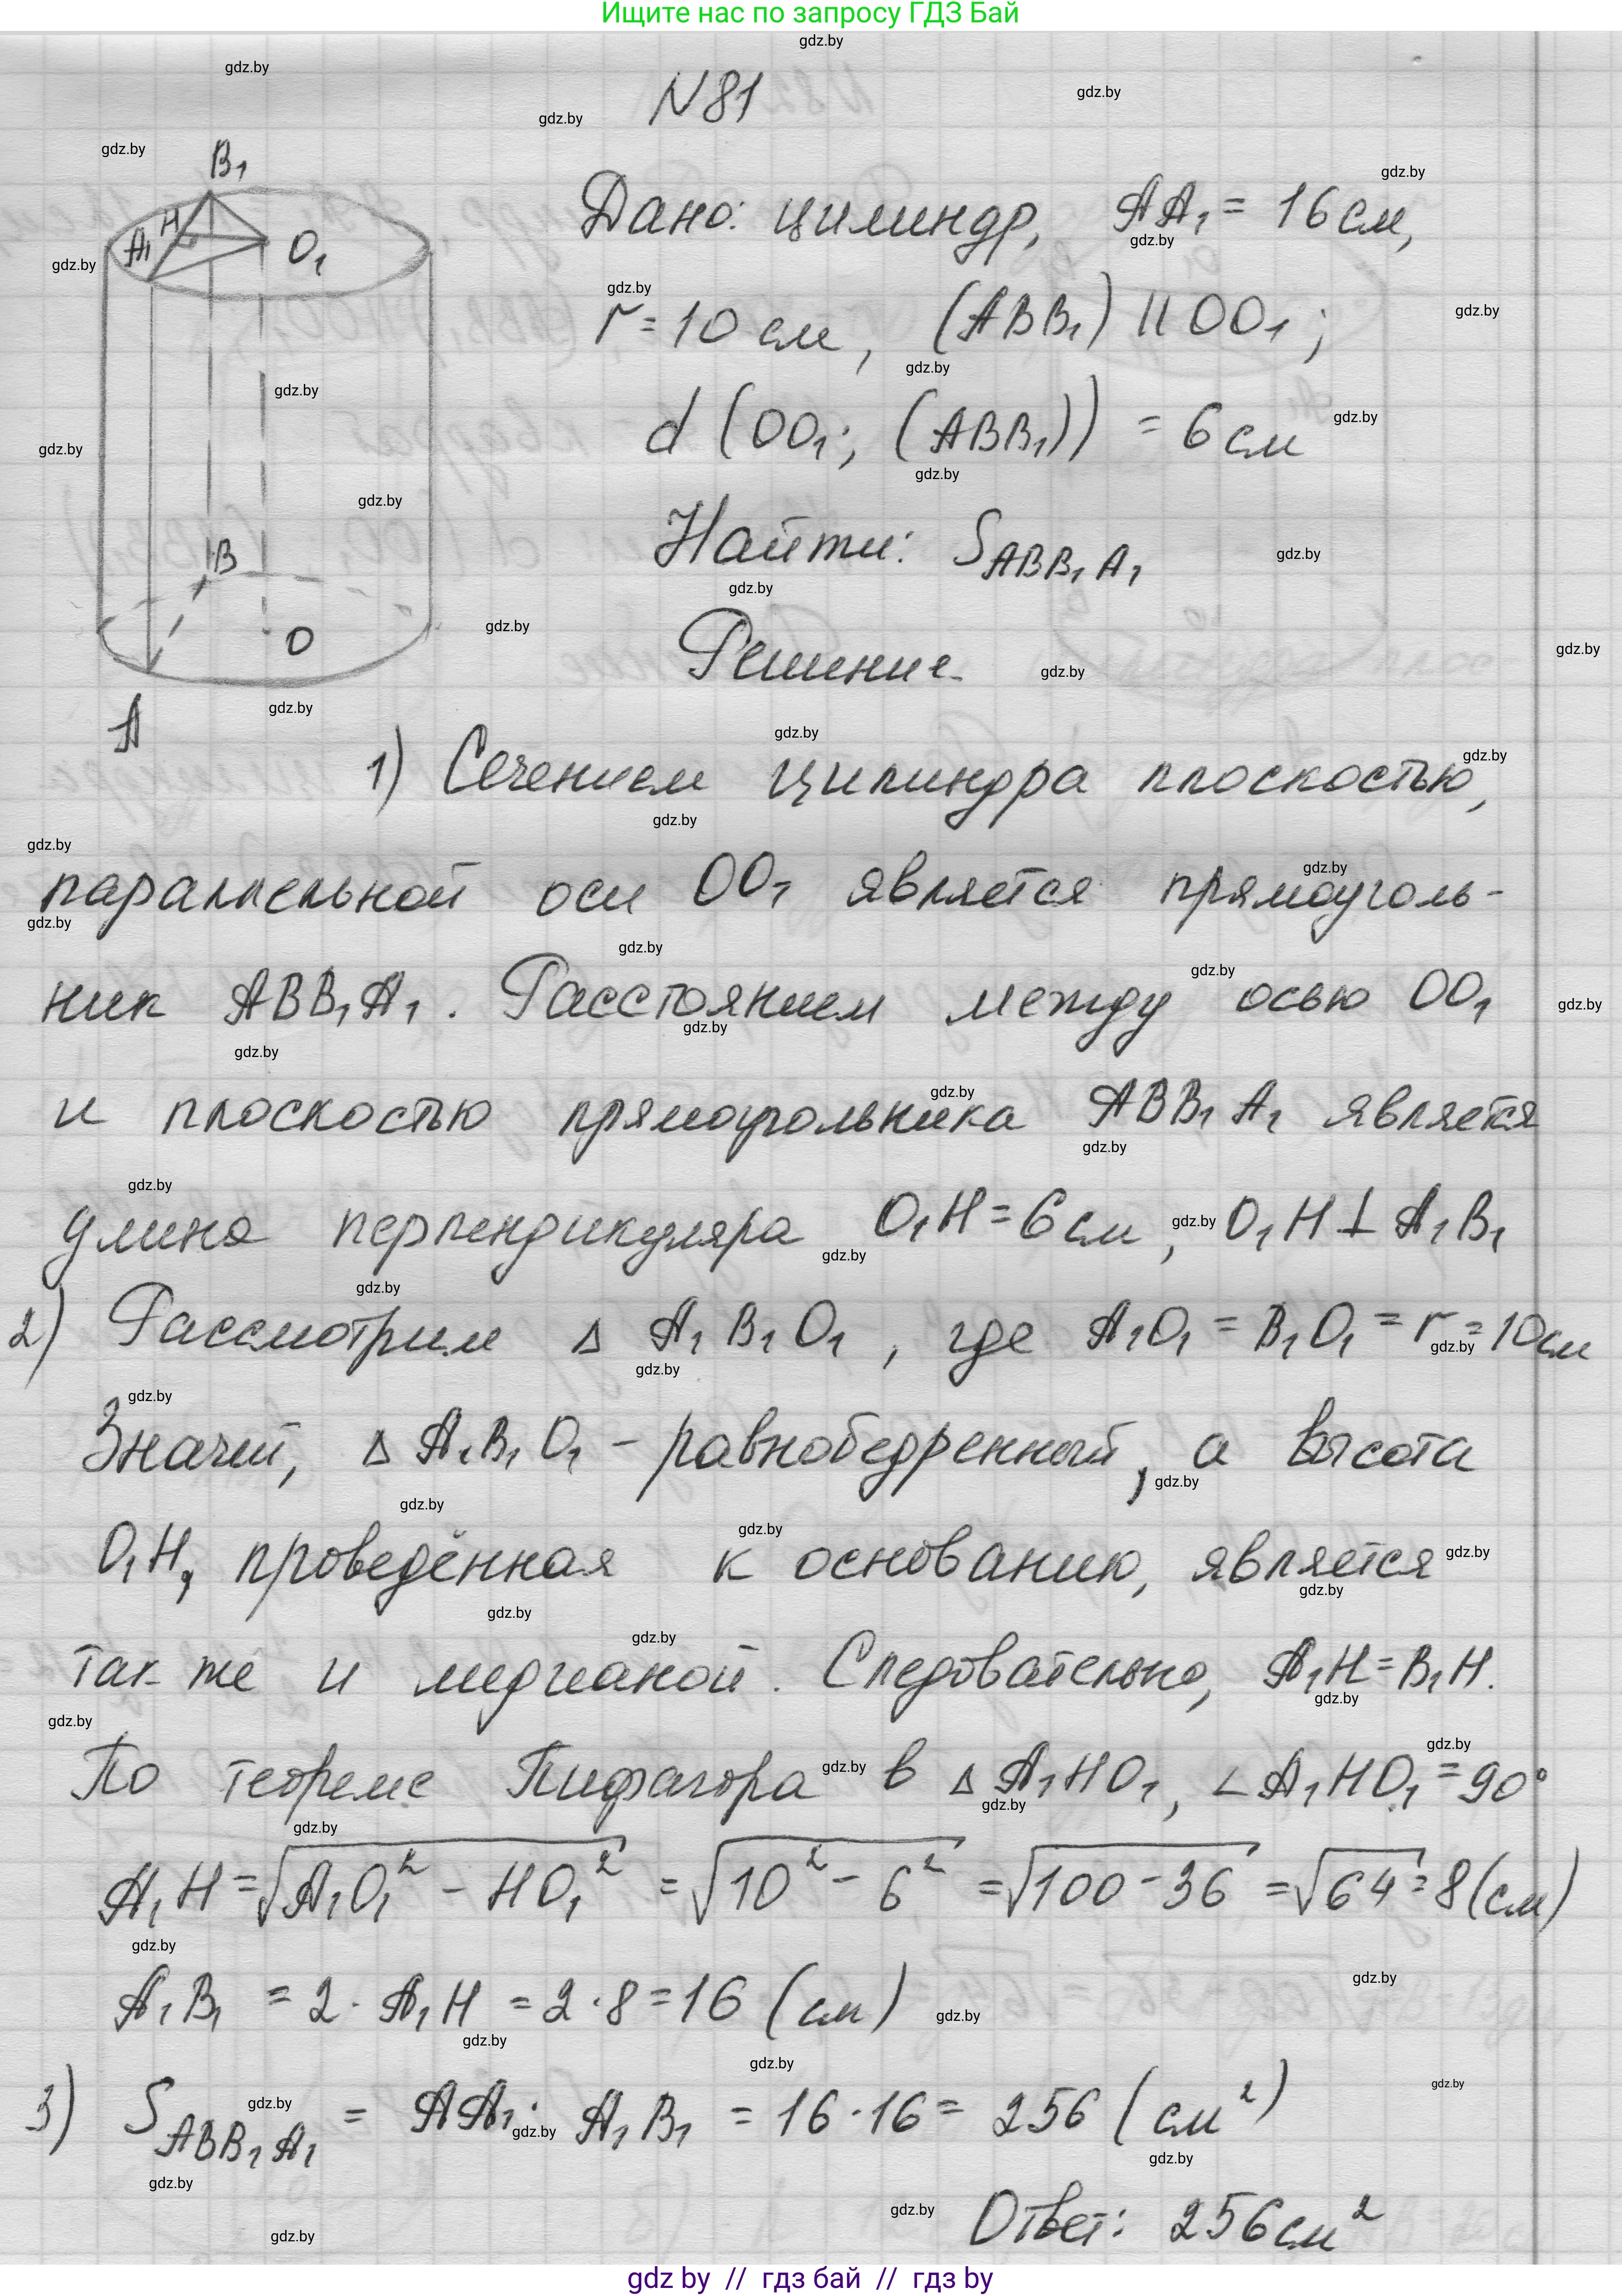 Ищите нас по запросу ГДЗ Бай
N81
Дано: цилиндр, AA₁ = 16 см,
r = 10 см, (ABB₁) || OO₁;
d (OO₁; (ABB₁)) = 6 см
Найти: S_ABB₁A₁
Решение.
B₁
H
A₁
O₁
B
O
A
1) Сечением цилиндра плоскостью,
параллельной оси OO₁ является прямоуголь-
ник ABB₁A₁. Расстоянием между осью OO₁
и плоскостью прямоугольника ABB₁A₁ является
длина перпендикуляра O₁H = 6 см, O₁H ⊥ A₁B₁
2) Рассмотрим Δ A₁B₁O₁, где A₁O₁ = B₁O₁ = r = 10 см
Значит, Δ A₁B₁O₁ - равнобедренный, а высота
O₁H, проведённая к основанию, является
так же и медианой. Следовательно, A₁H = B₁H.
По теореме Пифагора в Δ A₁HO₁, ∠A₁HO₁ = 90°
A₁H = √(A₁O₁² - HO₁²) = √(10² - 6²) = √(100 - 36) = √64 = 8 (см)
A₁B₁ = 2 · A₁H = 2 · 8 = 16 (см)
3) S_ABB₁A₁ = AA₁ · A₁B₁ = 16 · 16 = 256 (см²)
Ответ: 256 см²
gdz by // гдз бай // гдз by